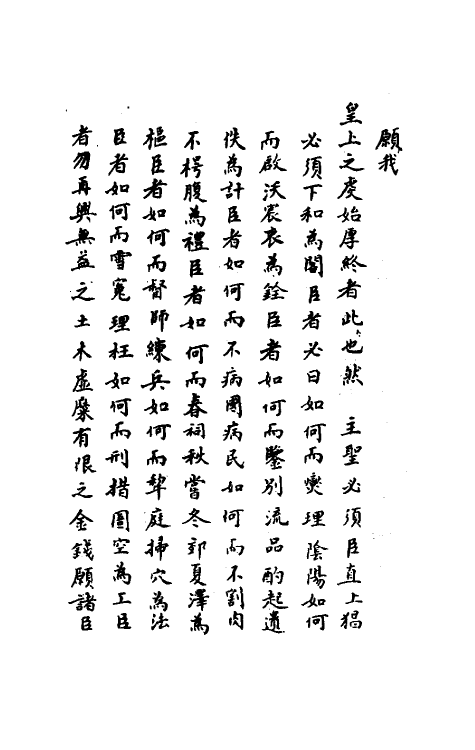 願我
皇上之虔始厚終者此也然 主聖必須臣直上猖
必須下和為閣臣者必日如何而爕理陰陽如何
而啟沃宸衷為銓臣者如何而鑒別流品酌起遺
佚為計臣者如何而不病國病民如何而不割肉
不枵腹為禮臣者如何而春祠秋嘗冬郊夏澤為
樞臣者如何而督師練兵如何而犂庭掃穴為法
臣者如何而雪寃理枉如何而刑措圄空為工臣
者勿再興無益之土木虛糜有限之金錢願諸臣